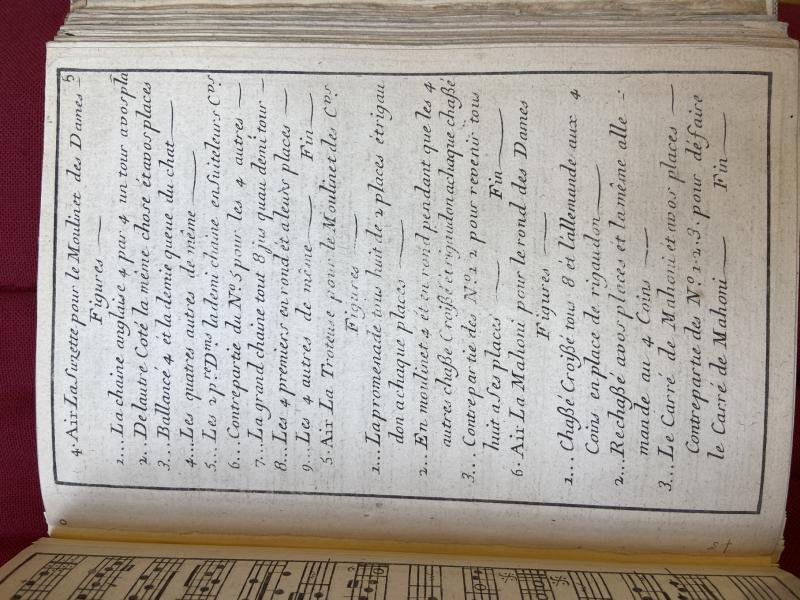 4. Air La Suzette pour le Moulinet des Dames 5
Figures
1... La chaine anglaise 4 par 4 un tour avos pla
2. De lautre Coté la même chose et avos places
3... Ballance 4 et la demie queue du chat
4... Les quatres autres de même
5... Les 2 pre Dns la demi chaine ensuite leurs Cvs
6... Contrepartie du No. 5 pour les 4 autres
7... La grand chaine tout 8 jus quau demi tour
8... Les 4 premiers en rond et a leurs places
9. Les 4 autres de même Fin
5. Air La Troteuse pour le Moulinet des Cvs
Figures
1... La promenade tous huit de 2 places et rigau
don a chaque places
2... En moulinet 4 et en rond pendant que les 4
autres chaßé Croißé et rigaudon achaque chaßé
3... Contrepartie des No. 1 2 pour revenir tous
huit a ses places Fin
6. Air La Mahoni pour le rond des Dames
Figures
1... Chaßé Croißé tous 8 et l'allemande aux 4
Coins en place de rigaudon
2... Rechaßé avos places et la même alle :
mande au 4 Coins
3... Le Carré de Mahoni et avos places
Contrepartie des No. 1. 2. 3. pour défaire
le Carré de Mahoni Fin